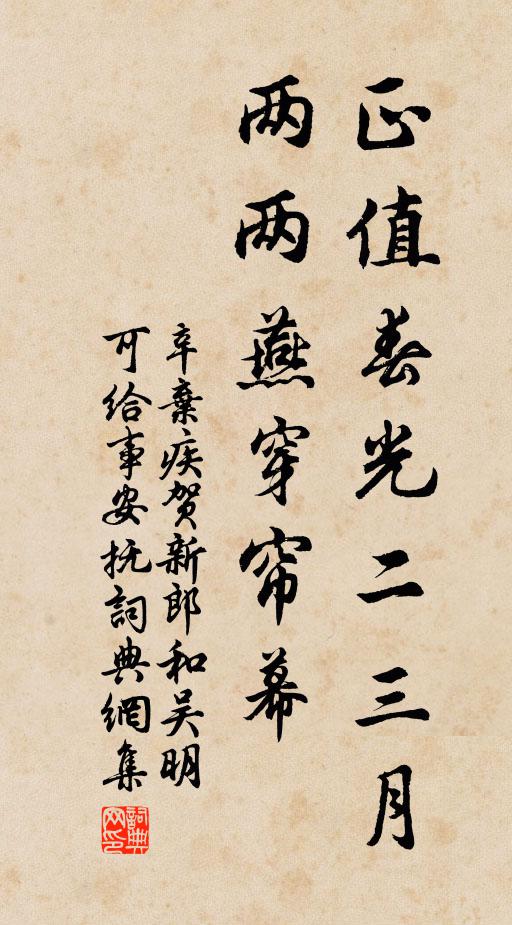 正值春光二三月
两两燕穿帘幕
辛棄疾贺新郎和吴明
可给事安抚詞典網集
詞典
网印